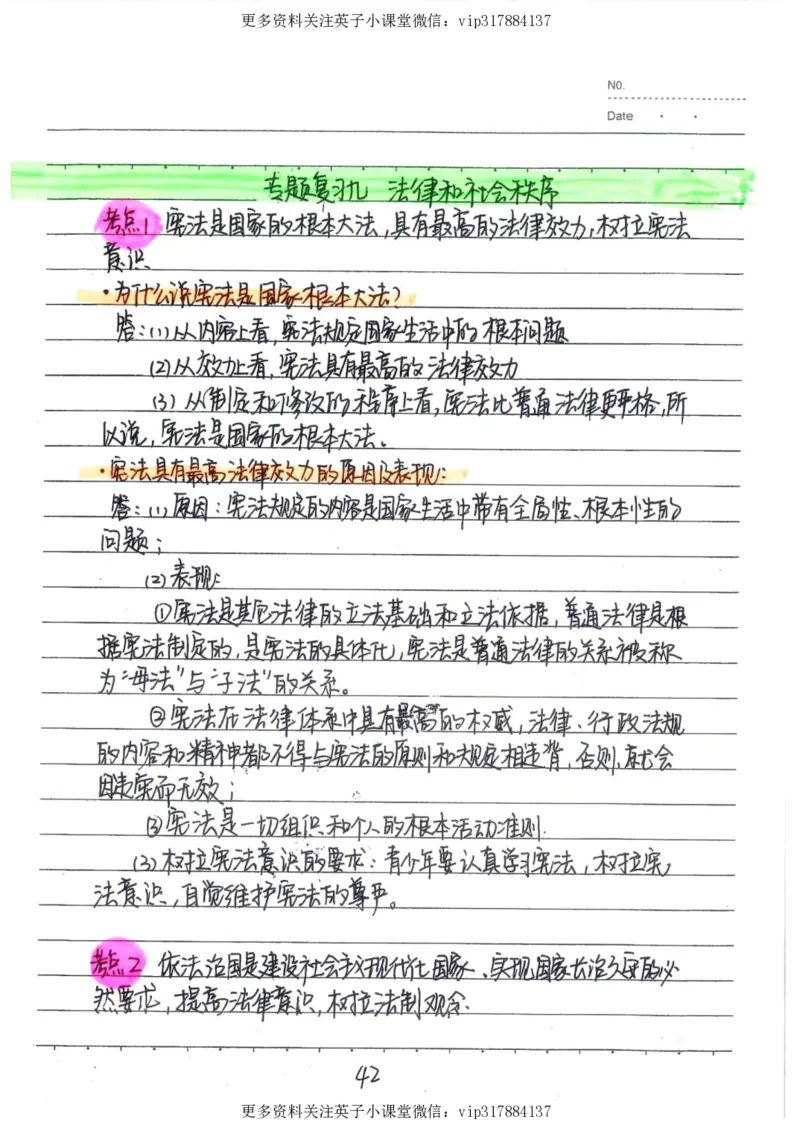 更多资料关注英子小课堂微信：vip317884137
NO.
Date
专题复习九 法律和社会秩序
考点1 宪法是国家的根本大法，具有最高的法律效力，树立宪法
意识
·为什么说宪法是国家根本大法？
答：(1)从内容上看，宪法规定国家生活中的根本问题
(2)从效力上看，宪法具有最高的法律效力
(3)从制定和修改的程序上看，宪法比普通法律更严格，所
以说，宪法是国家的根本大法。
·宪法具有最高法律效力的原因及表现：
答：(1)原因：宪法规定的内容是国家生活中带有全局性、根本性的
问题；
(2)表现：
①宪法是其它法律的立法基础和立法依据，普通法律是根
据宪法制定的，是宪法的具体化，宪法是普通法律的关系被称
为“母法”与“子法”的关系。
②宪法在法律体系中具有最高的权威，法律、行政法规
的内容和精神都不得与宪法的原则和规定相违背，否则，就会
因违宪而无效；
③宪法是一切组织和个人的根本活动准则.
(3)树立宪法意识的要求：青少年要认真学习宪法，树立宪
法意识，自觉维护宪法的尊严。
考点2 依法治国是建设社会主义现代化国家、实现国家长治久安的必
然要求，提高法律意识，树立法制观念.
42
更多资料关注英子小课堂微信：vip317884137